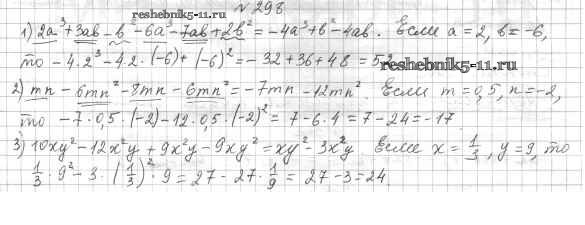 № 298
reshebnik5-11.ru
1) 2a³+3ab-b²-6a³-7ab+2b²=-4a³+b²-4ab. Если a=2, b=-6,
то -4·2³-4·2·(-6)+(-6)²=-32+36+48=52
reshebnik5-11.ru
2) mn-6mn²-8mn-6mn²=-7mn-12mn². Если m=0,5, n=-2,
то -7·0,5·(-2)-12·0,5·(-2)²=7-6·4=7-24=-17
3) 10xy²-12x²y+9x²y-9xy²=xy²-3x²y Если x=1/3, y=9, то
1/3·9²-3·(1/3)²·9=27-27·1/9=27-3=24